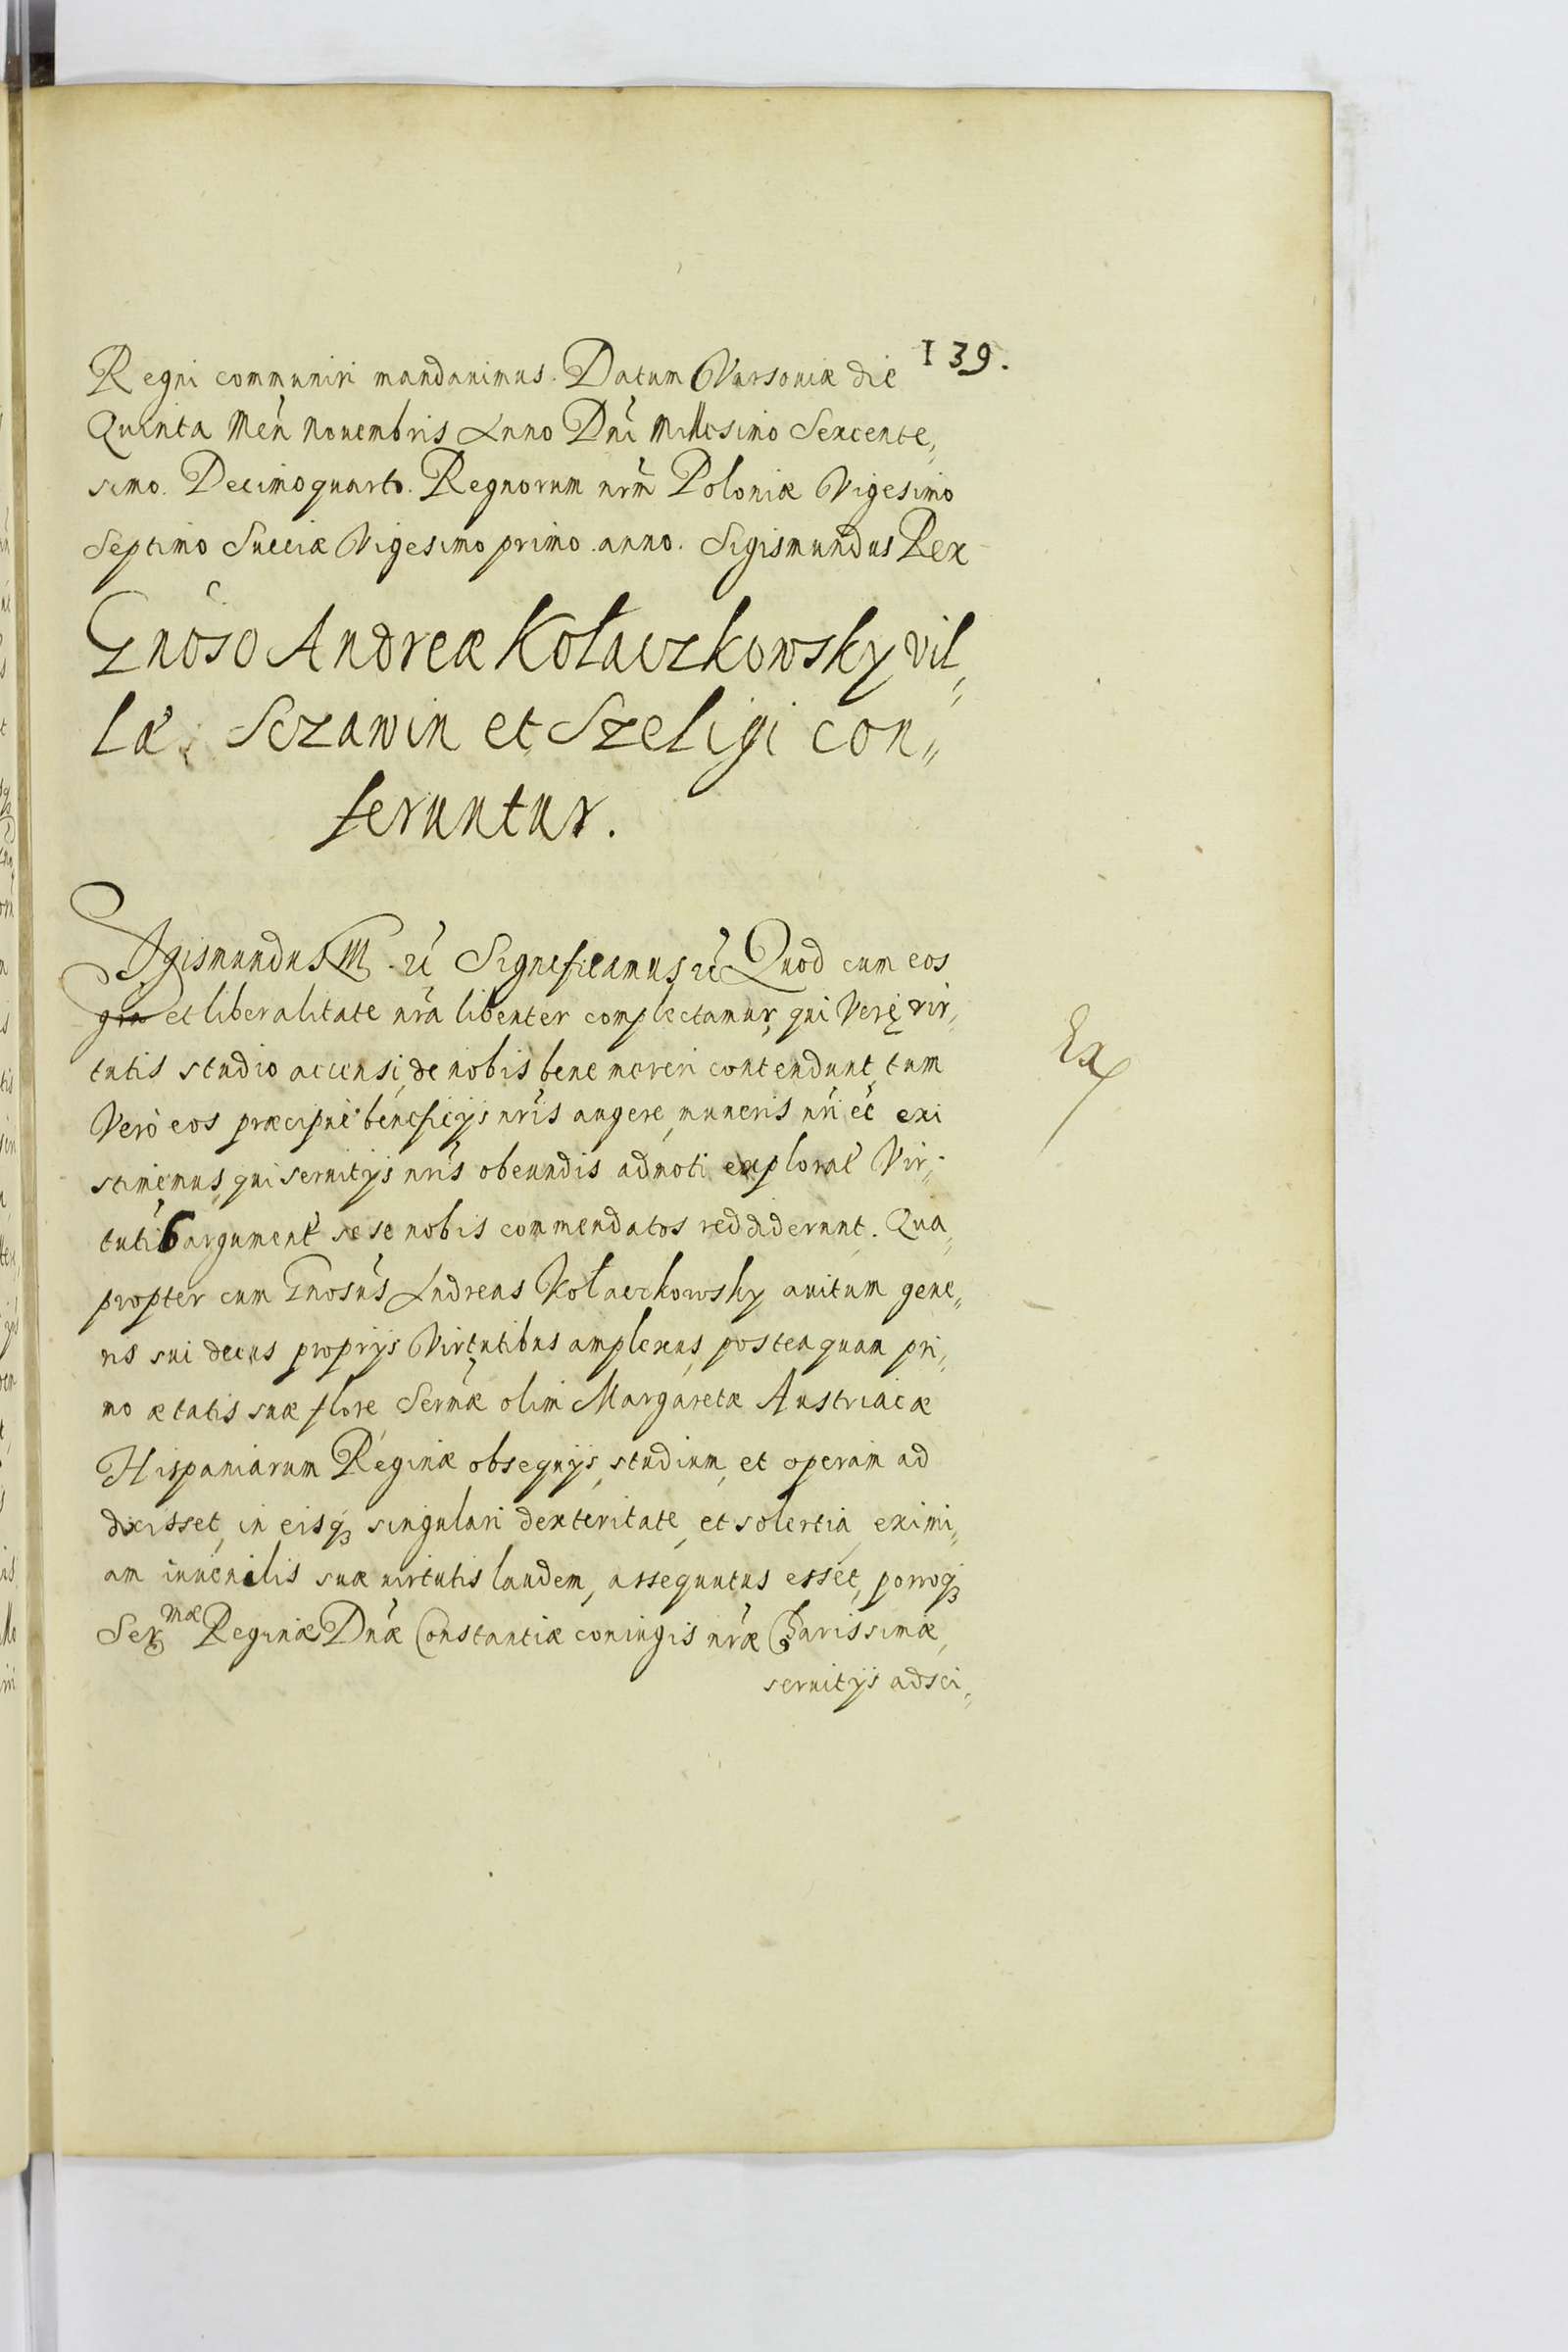 139.
Regni communiri mandauimus. Datum Varsoniæ die
Quinta Men̄ Nouembris Anno Dnī Millesimo Sexcente„
simo. Decimoquarto. Regnorum nrm̄ Poloniæ Vigesimo
Septimo Sueciæ Vigesimo primo anno. Sigismundus Rex
Gnōso Andreæ Kołaczkowsky vil„
læ. Sczawin et Szeligi con„
feruntur.
Sigismundus III. etc̄ Significamus etc̄ Quod cum eos
grā et liberalitate nrā libenter complectamur, qui Verę vir„
tutis studio accensi, de nobis bene mereri contendunt, tum
Verò eos præcipuè beneficijs nrīs augere, muneris nrī eē exi
stimemus, qui seruitijs nrīs obeundis admoti explorat̄ Vir„
tutis argument̄ se se nobis commendatos reddiderunt. Qua„
propter cum Gnosūs Andreas Kołaczkowsky auitum gene„
ris sui decus proprijs Virtutibus amplexus, posteaquam pri„
mo ætatis suæ flore Sermǣ olim Margaretæ Austriacæ
Hispaniarum Reginæ obsequijs, studium, et operam ad
dixisset, in eisqꜣ singulari dexteritate, et solertia, eximi„
am iuuenilis suæ uirtutis laudem, assequutus esset, porroqꜣ
Sermæ Reginæ Dnǣ Constantiæ coniugis nrǣ Charissimæ,
seruitijs adsci„
Ex